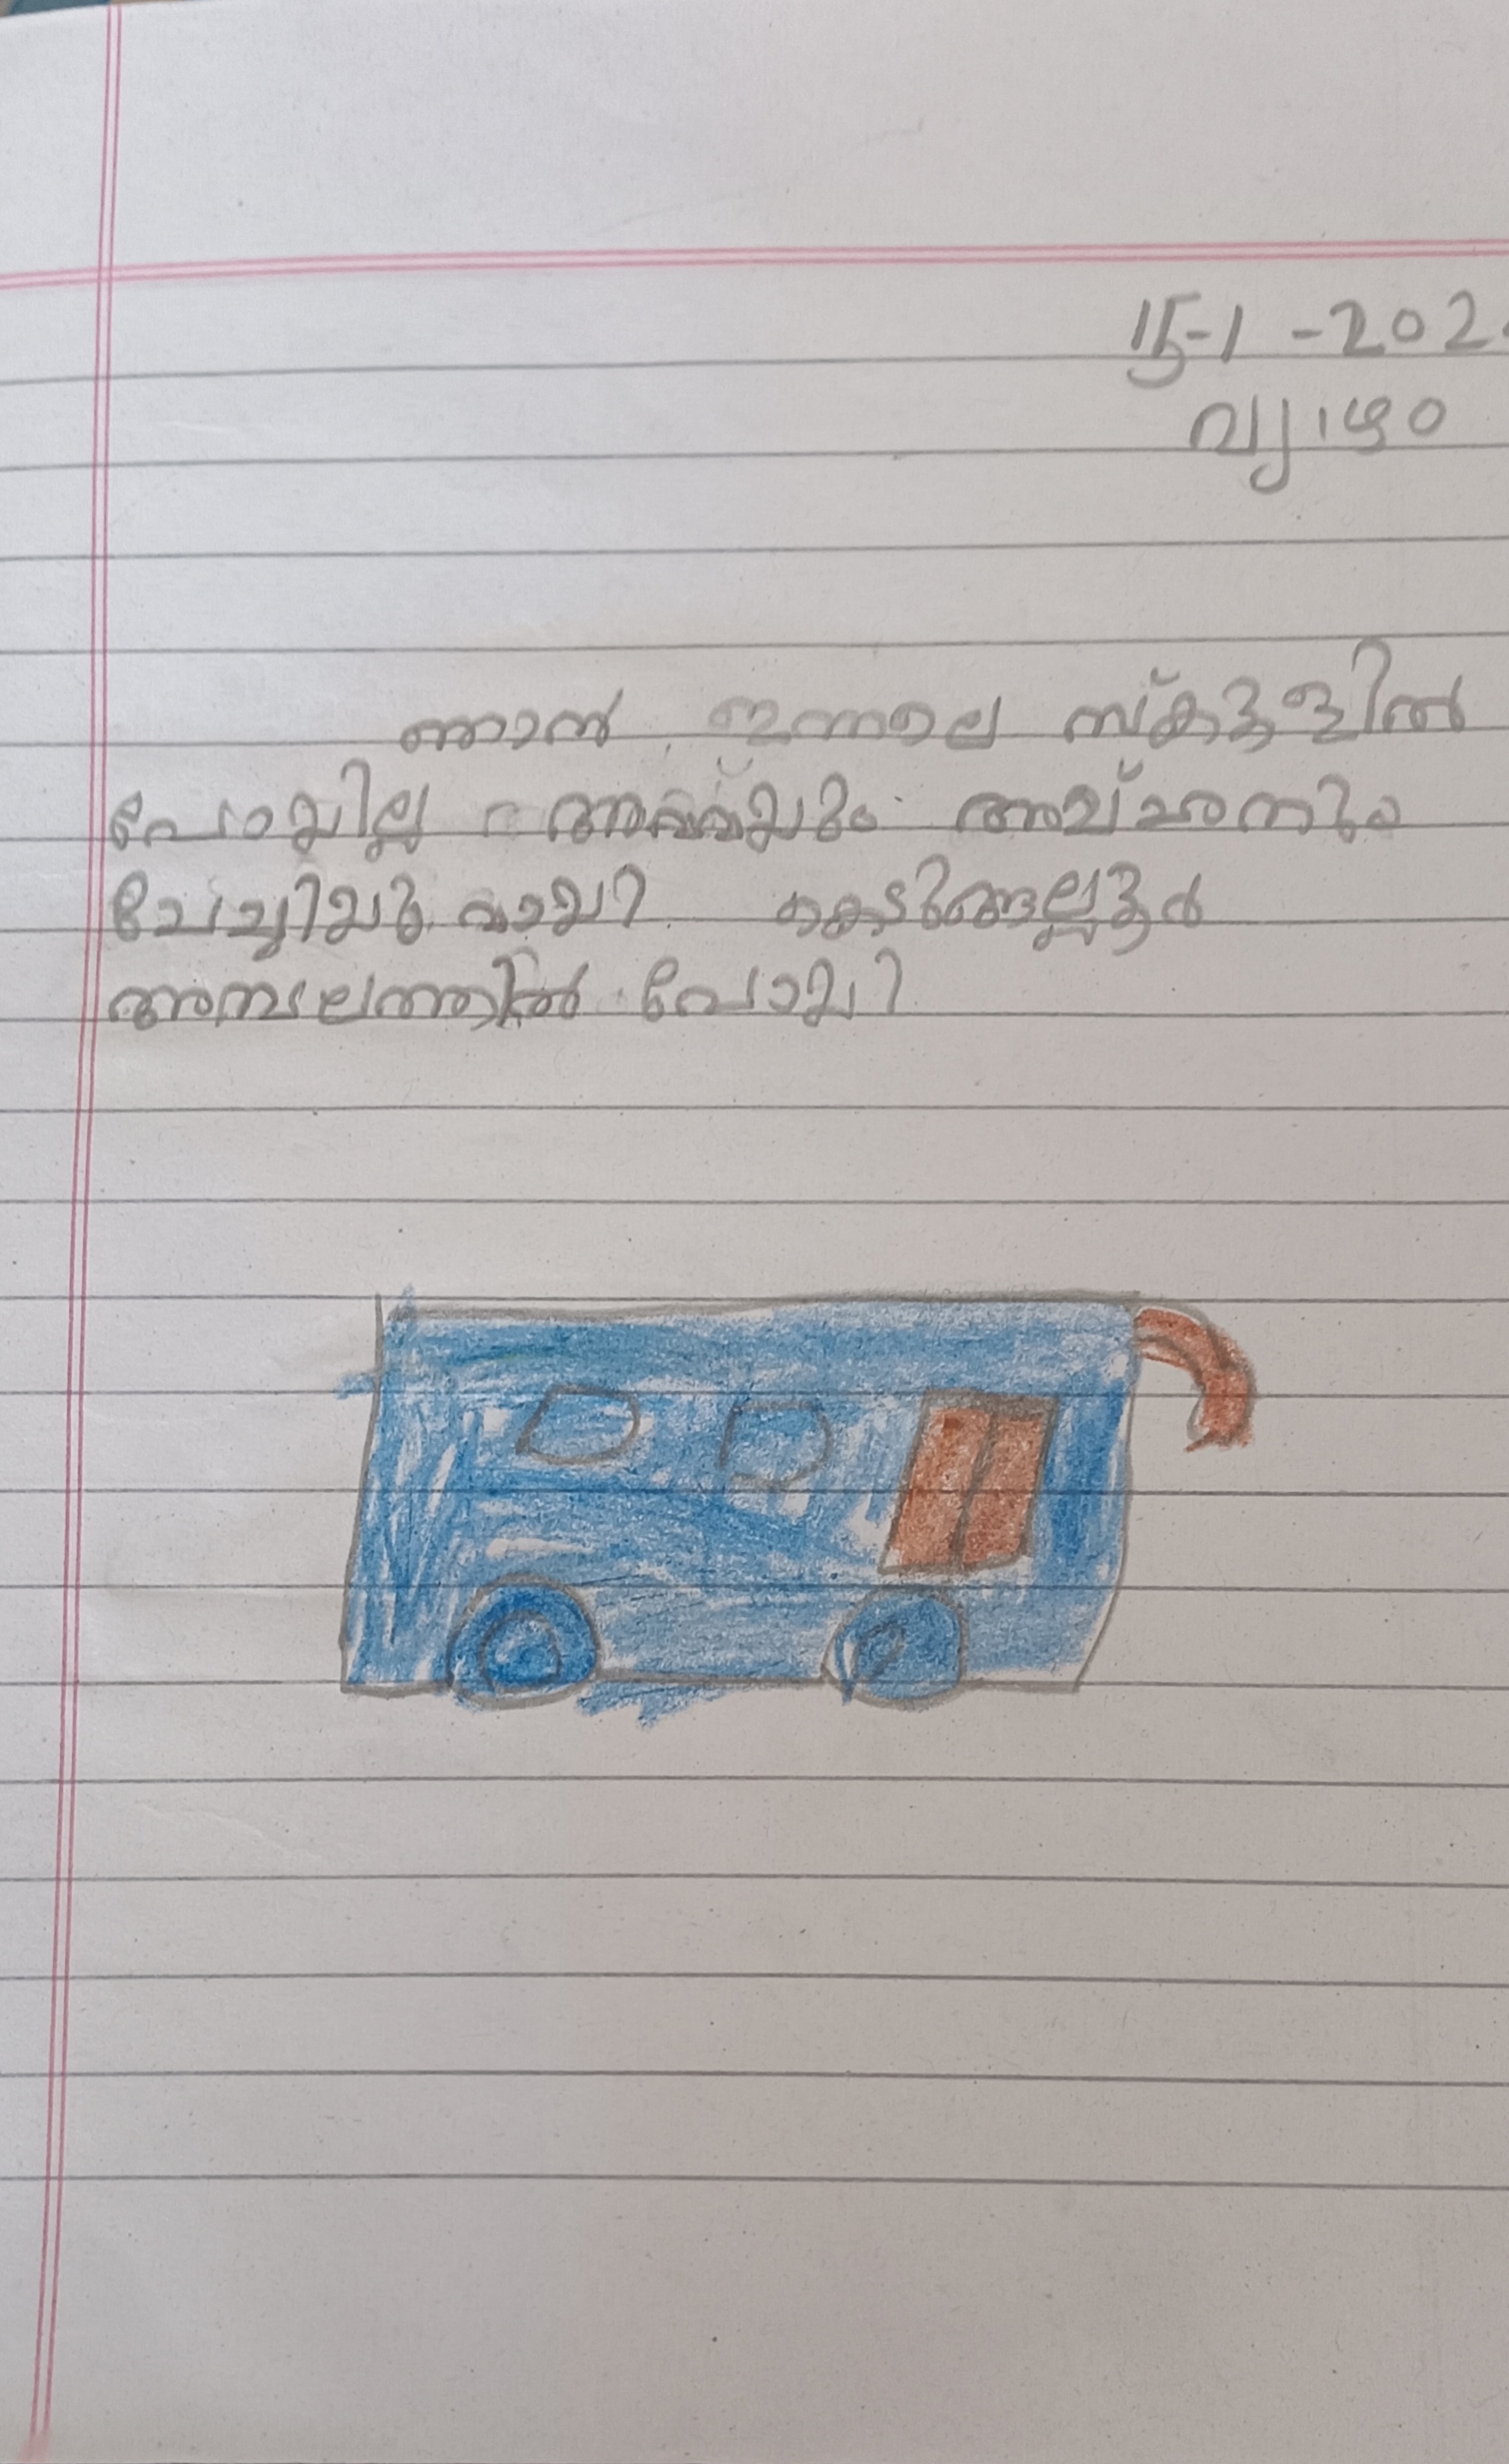 15-1-202
വ്യാഴം
ഞാൻ ഇന്നലെ സ്കൂളിൽ
പോയില്ല അമ്മയും അച്ഛനും
ചേച്ചിയുമായി കൊടുങ്ങല്ലൂർ
അമ്പലത്തിൽ പോയി